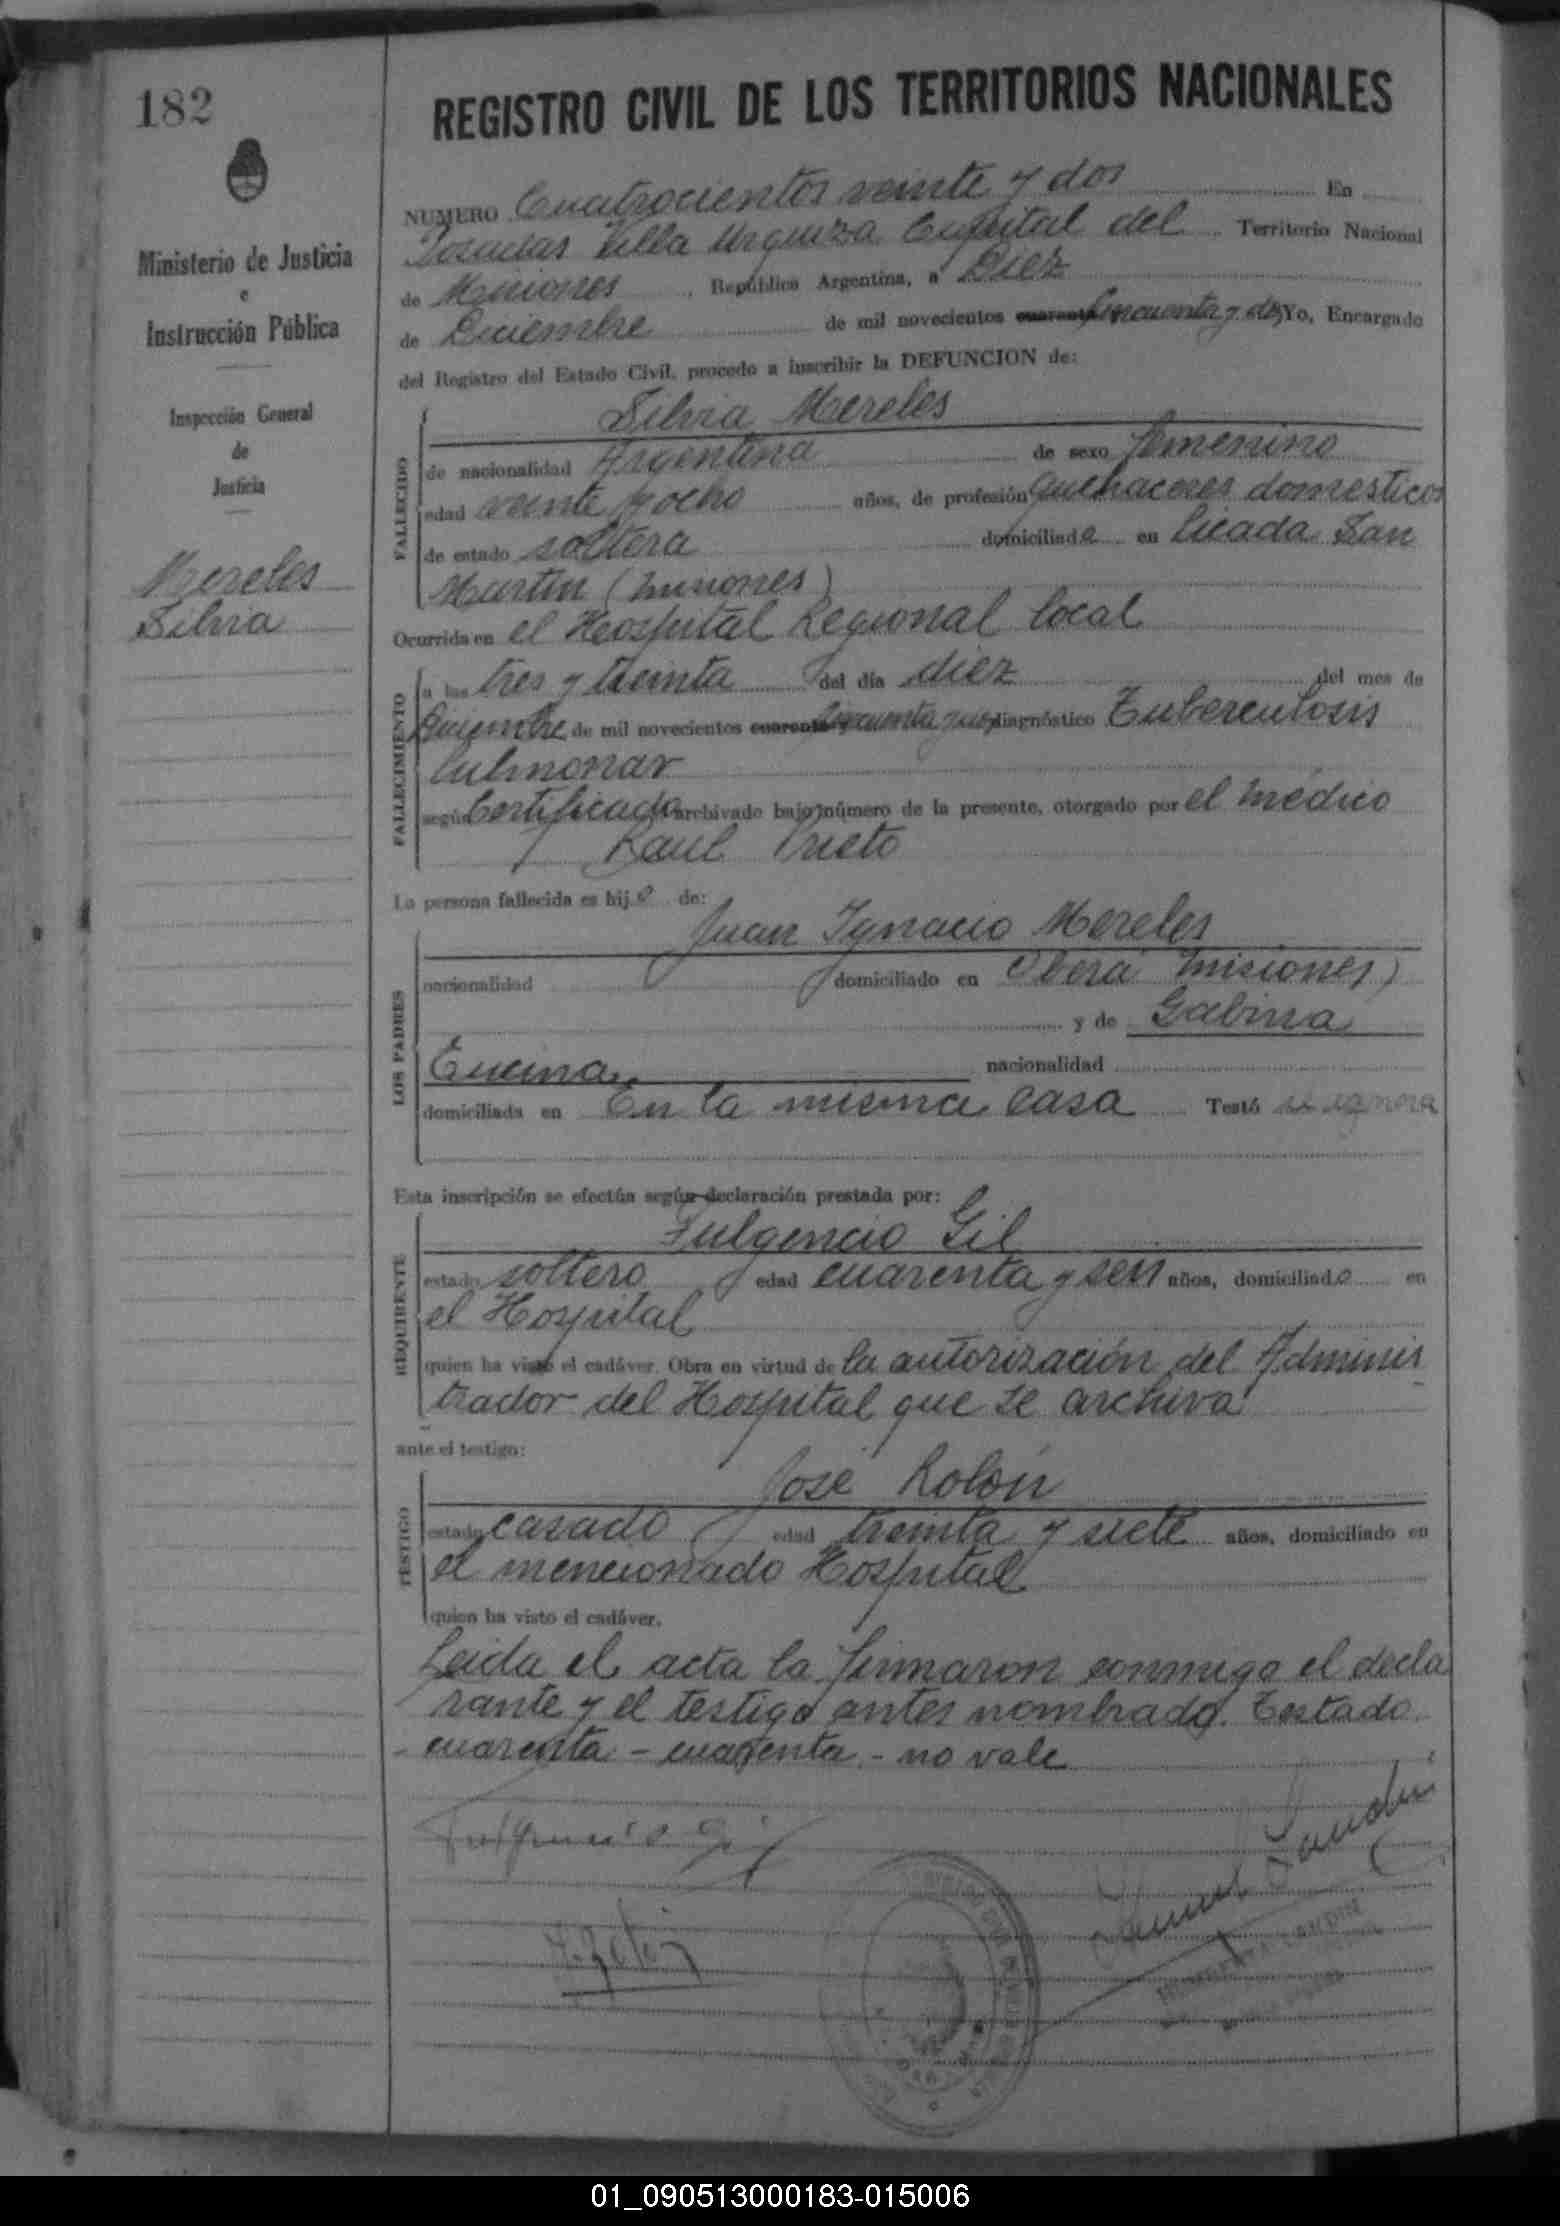 182
REGISTRO CIVIL DE LOS TERRITORIOS NACIONALES
Ministerio de Justicia
e
Instrucción Pública
Inspección General
de
Justicia
Mereles
Silvia
NUMERO Cuatrocientos veinte y dos En
Posadas Villa Urquiza Capital del Territorio Nacional
de Misiones, República Argentina, a Diez
de Diciembre de mil novecientos cuarenta cincuenta y dos Yo, Encargado
del Registro del Estado Civil, procedo a inscribir la DEFUNCION de:
FALLECIDO
Silvia Mereles
de nacionalidad Argentina de sexo femenino
edad veinte y ocho años, de profesión quehaceres domesticos
de estado soltera domiciliada en Picada San
Martin (Misiones)
Ocurrida en el Hospital Regional local
FALLECIMIENTO
a las tres y treinta del día diez del mes de
Diciembre de mil novecientos cuarenta y cincuenta y dos diagnóstico Tuberculosis
Pulmonar
según Certificado archivado bajo número de la presente, otorgado por el médico
Raul Prieto
La persona fallecida es hija de:
LOS PADRES
Juan Ygnacio Mereles
nacionalidad domiciliado en Oberá Misiones)
y de Gabina
Encina nacionalidad
domiciliada en En la misma casa Testó se ignora
Esta inscripción se efectúa según declaración prestada por:
REQUIRENTE
Fulgencio Gil
estado soltero edad cuarenta y seis años, domiciliado en
el Hospital
quien ha visto el cadáver. Obra en virtud de la autorización del Adminis
trador del Hospital que se archiva
ante el testigo:
TESTIGO
José Rolón
estado casado edad treinta y siete años, domiciliado en
el mencionado Hospital
quien ha visto el cadáver.
Leida el acta la firmaron conmigo el decla
rante y el testigo antes nombrado. Testado
- cuarenta - cuarenta - no vale
Fulgencio Gil
01_090513000183-015006